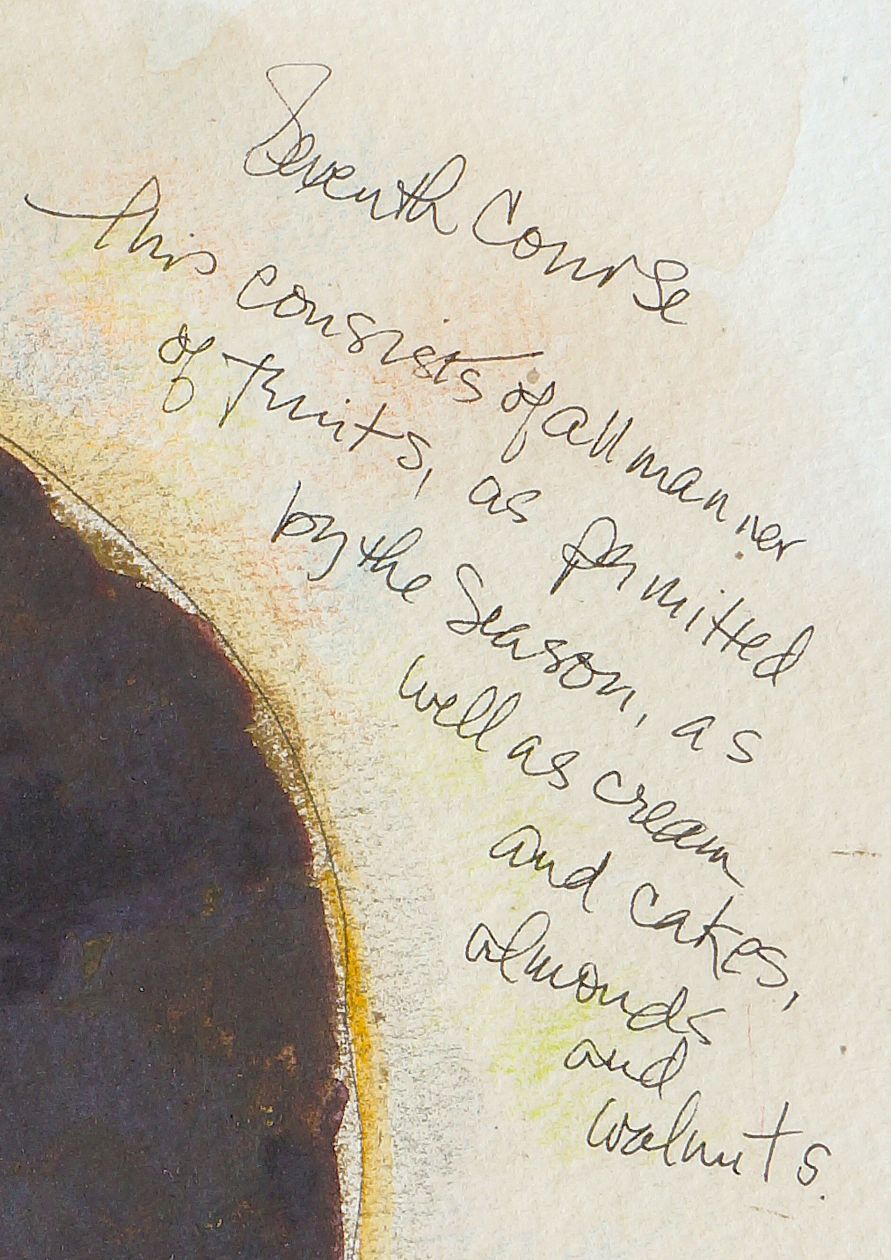 Seventh Course
This consists of all manner
of fruits, as permitted
by the Season, as
well as cream
and cakes,
almonds
and
walnuts.